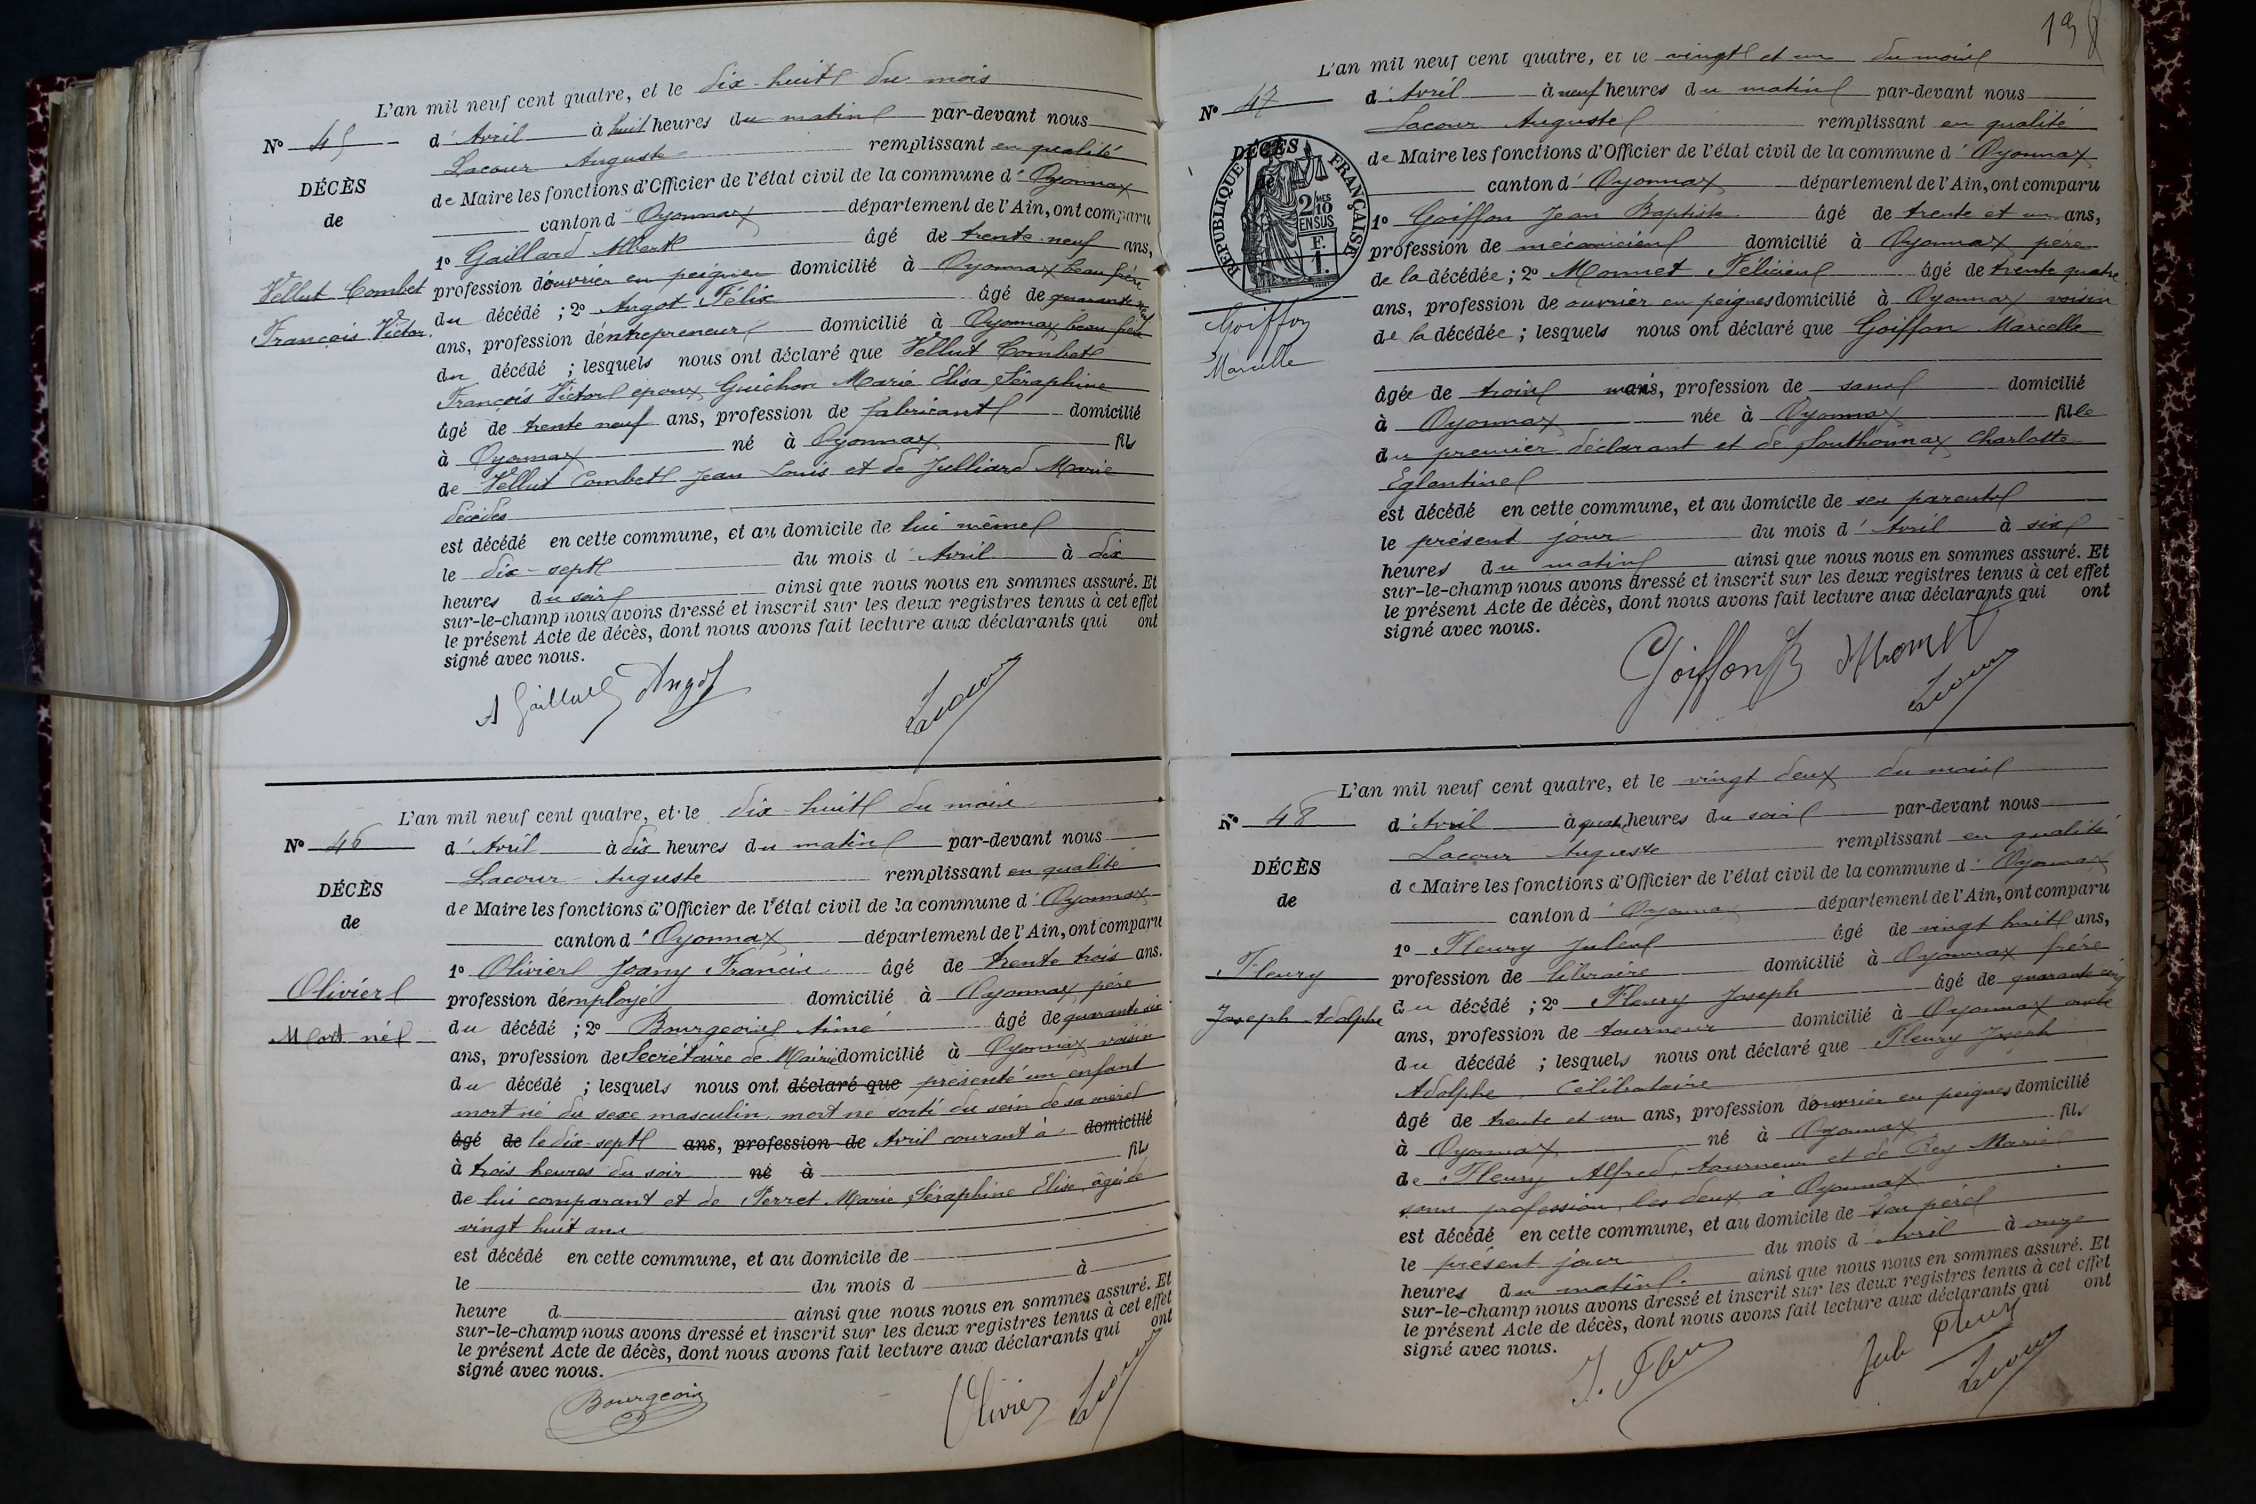 L'an mil neuf cent quatre, et le dix-huit du mois
N° 45
d'Avril à huit heures du matin par-devant nous
Lacour Auguste remplissant en qualité
DÉCÈS
de Maire les fonctions d'Officier de l'état civil de la commune d'Oyonnax
de
canton d'Oyonnax département de l'Ain, ont comparu
1° Gaillard Albert âgé de trente-neuf ans,
Vellut Combet
profession d'ouvrier en peignes domicilié à Oyonnax beau frère
François Victor.
du décédé ; 2° Angot Félix âgé de quarante
ans, profession d'entrepreneur domicilié à Oyonnax, beau frère
du décédé ; lesquels nous ont déclaré que Vellut Combet
François Victor époux Guichon Marie Elisa Séraphine
âgé de trente neuf ans, profession de fabricant domicilié
à Oyonnax né à Oyonnax fils
de Vellut Combet Jean Louis et de Julliard Marie
décédés
est décédé en cette commune, et au domicile de lui même
le dix-sept du mois d'Avril à dix
heures du soir ainsi que nous nous en sommes assuré. Et
sur-le-champ nous avons dressé et inscrit sur les deux registres tenus à cet effet
le présent Acte de décès, dont nous avons fait lecture aux déclarants qui ont
signé avec nous.
A Gaillard Angot Lacour
L'an mil neuf cent quatre, et le dix-huit du mois
N° 46
d'Avril à dix heures du matin par-devant nous
Lacour Auguste remplissant en qualité
DÉCÈS
de Maire les fonctions d'Officier de l'état civil de la commune d'Oyonnax
de
canton d'Oyonnax département de l'Ain, ont comparu
1° Olivier Joany Francis âgé de trente trois ans.
Olivier
profession d'employé domicilié à Oyonnax père
Mort né
du décédé ; 2° Bourgeois Aimé âgé de quarante six
ans, profession de Secrétaire de Mairie domicilié à Oyonnax voisin
du décédé ; lesquels nous ont déclaré que présenté un enfant
mort né du sexe masculin, mort né sorti du sein de sa mère
âgé de le dix-sept ans, profession de Avril courant à domicilié
à trois heures du soir né à fils
de lui comparant et de Perret Marie Séraphine Elise, âgée de
vingt huit ans
est décédé en cette commune, et au domicile de
le du mois d à
heure d ainsi que nous nous en sommes assuré. Et
sur-le-champ nous avons dressé et inscrit sur les deux registres tenus à cet effet
le présent Acte de décès, dont nous avons fait lecture aux déclarants qui ont
signé avec nous.
Bourgeois Olivier Lacour
L'an mil neuf cent quatre, et le vingt et un du mois
N° 47
d'Avril à neuf heures du matin par-devant nous
Lacour Auguste remplissant en qualité
DÉCÈS
RÉPUBLIQUE FRANÇAISE
2/10 MES
EN SUS
F.
1.
de Maire les fonctions d'Officier de l'état civil de la commune d'Oyonnax
canton d'Oyonnax département de l'Ain, ont comparu
1° Goiffon Jean Baptiste âgé de trente et un ans,
profession de mécanicien domicilié à Oyonnax père
de la décédée ; 2° Monnet Félicien âgé de trente quatre
Goiffon
ans, profession de ouvrier en peignes domicilié à Oyonnax voisin
Marcelle
de la décédée ; lesquels nous ont déclaré que Goiffon Marcelle
âgée de trois mois, profession de sans domicilié
à Oyonnax née à Oyonnax fille
du premier déclarant et de Southonnax Charlotte
Eglantine
est décédé en cette commune, et au domicile de ses parents
le présent jour du mois d'Avril à six
heures du matin ainsi que nous nous en sommes assuré. Et
sur-le-champ nous avons dressé et inscrit sur les deux registres tenus à cet effet
le présent Acte de décès, dont nous avons fait lecture aux déclarants qui ont
signé avec nous.
Goiffon JB Monnet Lacour
L'an mil neuf cent quatre, et le vingt deux du mois
N° 48
d'Avril à quatre heures du soir par-devant nous
Lacour Auguste remplissant en qualité
DÉCÈS
de Maire les fonctions d'Officier de l'état civil de la commune d'Oyonnax
de
canton d'Oyonnax département de l'Ain, ont comparu
1° Fleury Jules âgé de vingt huit ans,
Fleury
profession de libraire domicilié à Oyonnax frère
Joseph Adolphe
du décédé ; 2° Fleury Joseph âgé de quarante cinq
ans, profession de tourneur domicilié à Oyonnax oncle
du décédé ; lesquels nous ont déclaré que Fleury Joseph
Adolphe, célibataire
âgé de trente et un ans, profession d'ouvrier en peignes domicilié
à Oyonnax né à Oyonnax fils
de Fleury Alfred, tourneur et de Rey Marie
sans profession, les deux à Oyonnax
est décédé en cette commune, et au domicile de son père
le présent jour du mois d'Avril à onze
heures du matin. ainsi que nous nous en sommes assuré. Et
sur-le-champ nous avons dressé et inscrit sur les deux registres tenus à cet effet
le présent Acte de décès, dont nous avons fait lecture aux déclarants qui ont
signé avec nous.
J. Fleury Jules Fleury Lacour